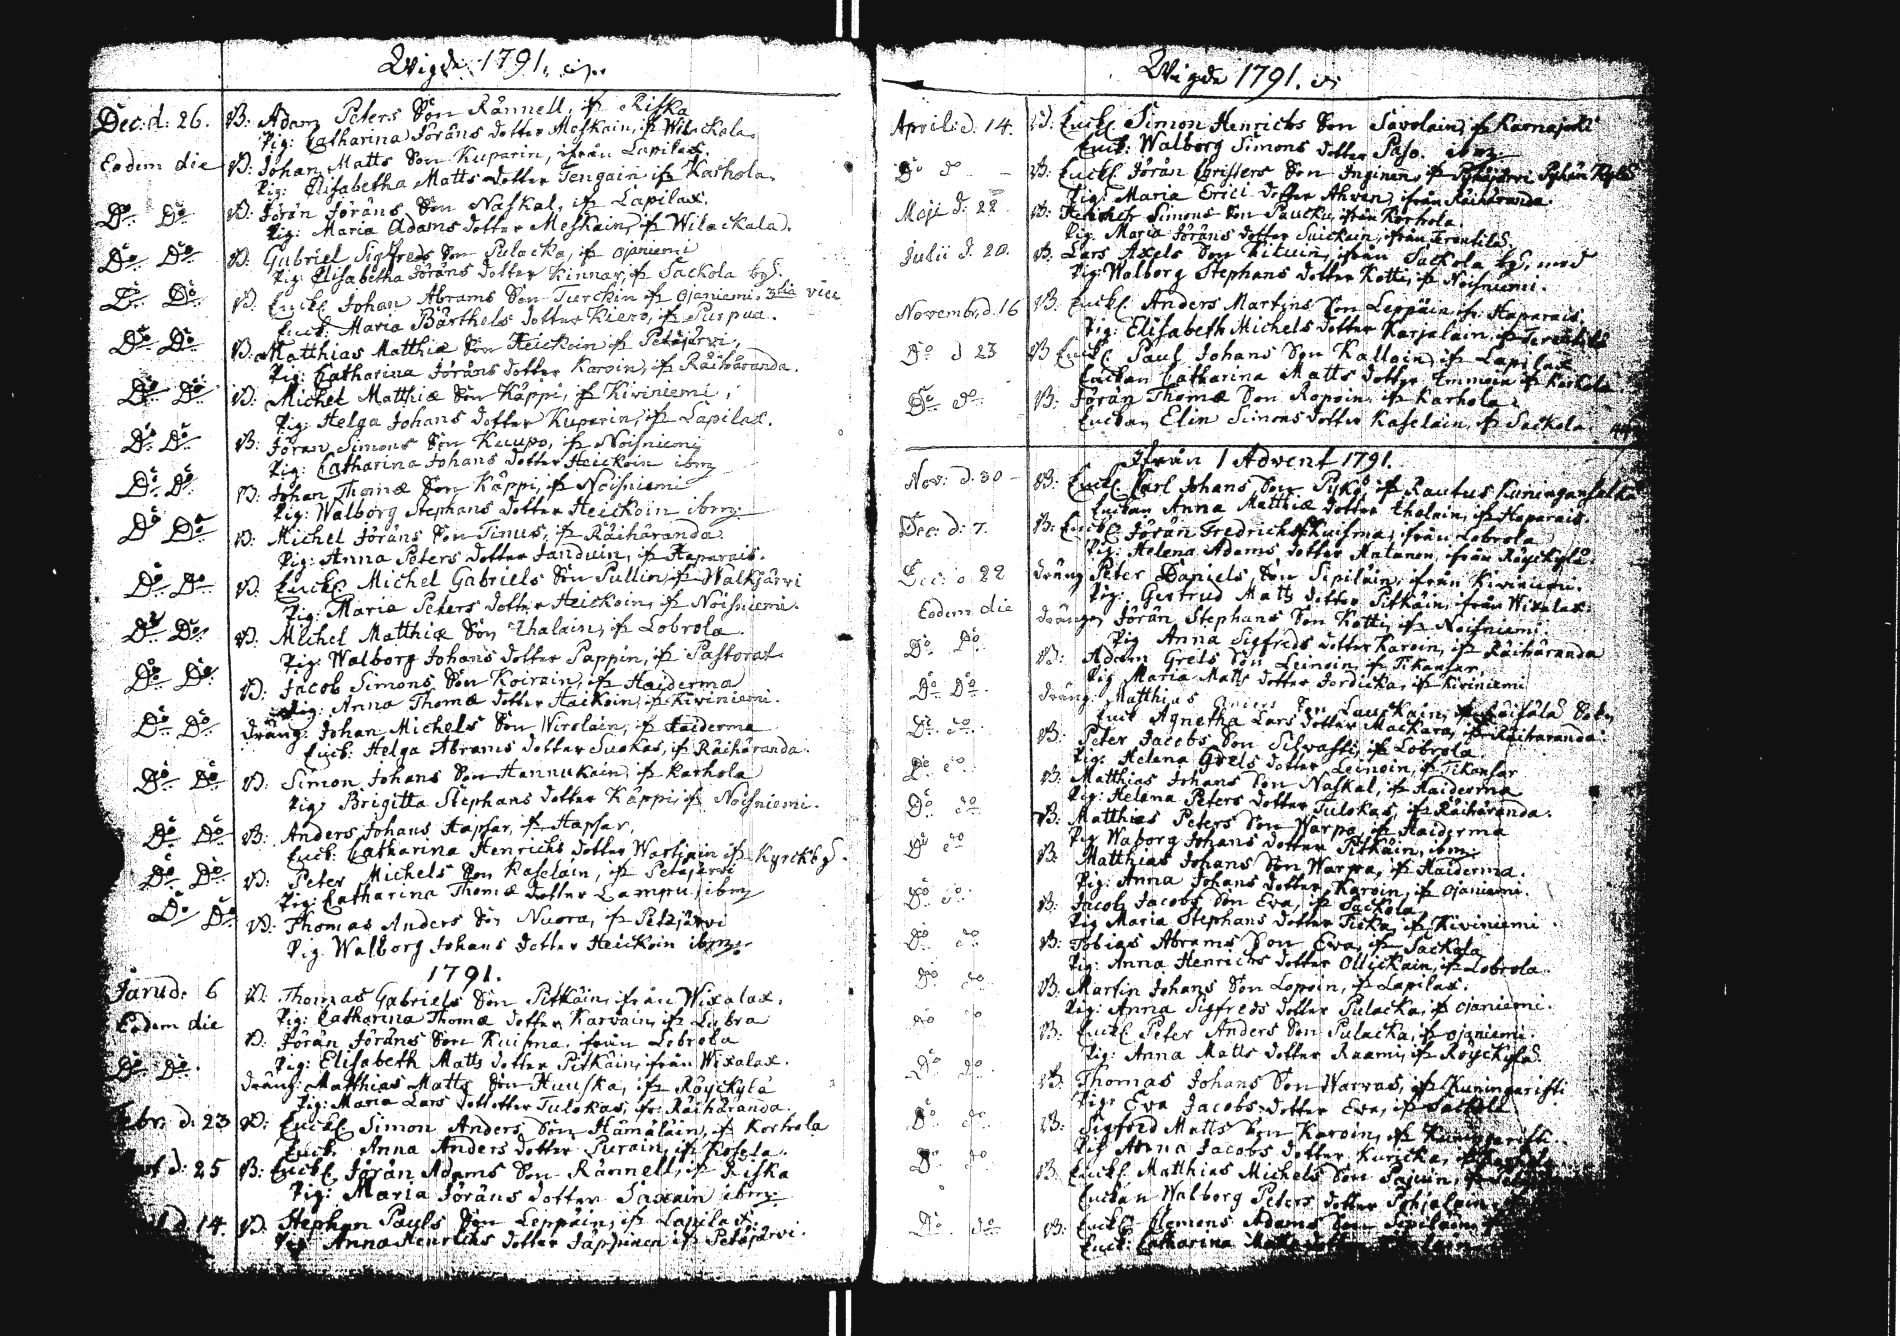 Wigde 1791.
Dec: d: 26. B: Adam Peters Son Rännell, if Riska
Pig: Catharina Jöräns dotter Meskain, if Wilackala.
Eodem die B: Johan Matts Son Kuparin, ifrån Lapilax.
Pig: Elisabetha Matts dotter Tengain if Karhola.
Do Do B: Jörän Jöräns Son Naskal, if Lapilax.
Pig: Maria Adams dotter Meskain, if Wilackala.
Do Do B: Gabriel Sigfreds Son Pulacka, if Ojaniemi
Pig: Elisabetha Jöräns dotter Kinnar, if Sackola by.
Do Do B: Enckl Johan Abrams Son Turckin if Ojaniemi. 3tia vice
Enck: Maria Bärthels dotter Kiero, if Purpua.
Do Do B: Matthias Matthiæ Son Heickoin if Petäjärvi,
Pig: Catharina Jöräns dotter Karoin, if Räihäranda.
Do Do B: Michel Matthiæ Son Käppi, if Kiviniemi,
Pig: Helga Johans dotter Kuparin, if Lapilax.
Do Do B: Jöran Simons Son Kuupo, if Noisniemi
Pig: Catharina Johans dotter Heickoin ibm
Do Do B: Johan Thomæ Son Käppi, if Noisniemi
Pig: Walborg Stephans dotter Heickoin ibm:
Do Do B: Michel Jöräns Son Tinus, if Räihäranda
Pig: Anna Peters dotter Janduin, if Haparais.
Do Do B. Enckl Michel Gabriels Son Pullin, if Walkjärvi
Pig: Maria Peters dotter Heickoin, if Noisniemi.
Do Do B. Michel Matthiæ Son Ihalain, if Lobrola.
Pig: Walborg Johans dotter Pappin, if Pastorat
Do Do B: Jacob Simons Son Koirain, if Haiderma
Pig: Anna Thomæ dotter Haikoin, if Kiviniemi.
Do Do dräng: Johan Michels Son Wirolain, if Haiderma
Enck: Helga Abrams dotter Suokas, if Räihäranda.
Do Do B: Simon Johans Son Hannukain, if Karhola
Pig: Brigitta Stephans dotter Käppi, if Noisniemi.
Do Do B: Anders Johans Hapsar, if Hapsar,
Enck: Catharina Henrichs dotter Wartiain if Kyrckby.
Do Do B: Peter Michels Son Kaselain, if Petäjärvi
Pig: Catharina Thomæ dotter Lampu, ibm
Do Do B: Thomas Anders Son Nuora, if Petäjärvi
Pig Walborg Johans dotter Heickoin ibm.
1791.
Janu d: 6 B: Thomas Gabriels Son Pitkäin, ifrån Wixalax.
Pig: Catharina Thomæ dotter Karvain, if Lobra
Eodem die B: Jörän Jöräns Son Kuisma, ifrån Lobrola
Pig: Elisabeth Matts dotter Pitkäin, ifrån Wixalax.
Do Do dräng: Matthias Matts Son Huuska, if Röyckylä
Pig: Maria Lars dotter Tulokas, if: Räihäranda.
Febr: d: 23 B: Enckl Simon Anders Son Hämäläin, if Korhola
Enck. Anna Anders dotter Purain, if Kosela.
d: 25 B: Enckl Jörän Adams Son Rännell, if Riska
Pig: Maria Jöräns dotter ibm:
d. 14. B. Stephan Pauls Son Leppäin, if Lapilax.
Pig Anna Henrichs dotter Jäppinen if Petäjärvi.
Wigde 1791.
April: d. 14. B: Enckl Simon Henrichs Son Savolain, if Karnajoki
Enck: Walborg Simons dotter Paso. ibm:
Do Do B: Enckl Jörän Christers Son Inginen, if
Pig: Maria Erici dotter Ahven, ifrån Räihäranda.
Maji d: 22 B: Henrich Simons Son Paucku, ifrån Korhola.
Pig. Maria Jöräns dotter Suickain, ifrån Terentilä.
Julii d. 20. B. Lars Axels Son Hituin, ifrån Sackola by, med
Pig: Walborg Stephans dotter Kotti, if Noisniemi.
Novemb: d. 16 B: Enckl Anders Martins Son Leppäin, if: Haparais.
Pig: Elisabeth Michels dotter Karjalain, if Terentilä
Do d 23 B Enckl Paul Johans Son Kallain, if Lapilax
Enckan Catharina Matts dotter Immoin if Karhola
Do do B: Jörän Thomæ Son Ropoin, if Karhola.
Enckan Elin Simons dotter Kaselain, if Sackola
Ifrån 1 Advent 1791.
Nov: d. 30 B: Enckl Carl Johans Son Pykö if Rautus
Enckan Anna Matthiæ dotter Ihalain, if Haparais.
Dec: d: 7. B: Enckl Jörän Fredrichs Kuisma, ifrån Lobrola
Pig: Helena Adams dotter Hatanen, ifrån Röyckylä.
Dec: d 22 dräng Peter Daniels Son Sipiläin, ifrån Kiviniemi.
Pig: Gertrud Matts dotter Pitkäin, ifrån Wixalax.
Eodem die drängen Jörän Stephans Son Kotti, if Noisniemi
Pig Anna Sigfreds dotter Karoin, if Räihäranda
Do Do B: Adam Grels Son Leinoin, if Tikansar
Pig Maria Matts dotter Jordicka, if Kiviniemi
Do Do dräng: Matthias Son Lauckain,
Enck Agnetha Lars dotter Mackara, if Räihäranda
Do do B: Peter Jacobs Son Silvasti, if Lobrola
Pig: Helena Grels dotter Leinoin, if Tikansar
Do do B: Matthias Johans Son Naskal, if Haiderma
Pig: Helena Peters dotter Tulokas, if Räihäranda.
Do do B: Matthias Peters Son Warpa, if Haiderma
Pig Waborg Johans dotter Pitkäin, ibm:
Do do B: Matthias Johans Son Warpa, if Haiderma.
Pig: Anna Johans dotter Karoin, if Ojaniemi.
Do do B: Jacob Jacobs Son Eva, if Sackola
Pig Maria Stephans dotter Tiska, if Kiviniemi
Do do B: Tobias Abrams Son Eva, if Sackola
Pig: Anna Henrichs dotter Ollickain, if Lobrola.
Do do B. Martin Johans Son Lopoin, if Lapilax.
Pig: Anna Sigfreds dotter Pulacka, if Ojaniemi.
Do do B: Enckl Peter Anders Son Pulacka, if Ojaniemi.
Pig: Anna Matts dotter Raami, if Röyckylä.
Do do B: Thomas Johans Son Warvas, if Kuningaristi
Pig: Eva Jacobs dotter Eva, if Sackola
Do do B: Sigfred Matts Son Karoin, if Kuningaristi.
Pig Anna Jacobs dotter Kuricka,
Do do B. Enckl Matthias Michels Son
Enckan Walborg Peters dotter Pohjalain
Do do B: Enckl Clemens Adams Son Sipiläin
Enck: Catharina Matts dotter